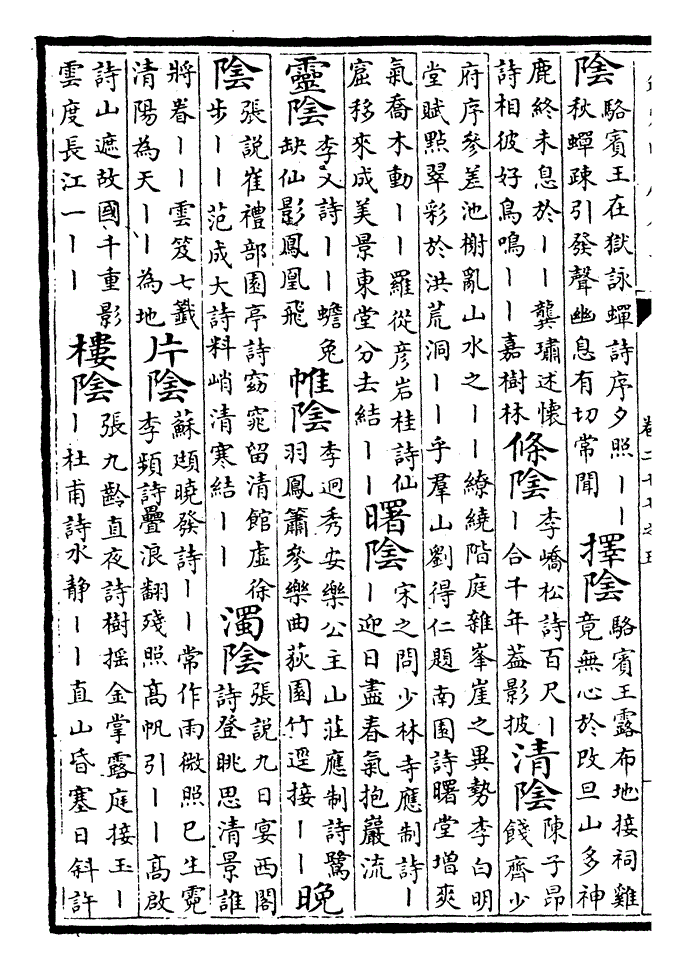 陰 駱賓王在獄詠蟬詩序夕照丨丨秋蟬疎引發聲幽息有切常聞 擇陰 駱賓王露布地接祠雞竟無心於改旦山多神
鹿終未息於丨丨龔璛述懷詩相彼好鳥鳴丨丨嘉樹林 條陰 李嶠松詩百尺丨丨合千年葢影披 清陰 陳子昂餞齊少
府序參差池榭亂山水之丨丨繚繞階庭雜峯崖之異勢李白明堂賦點翠彩於洪荒洞丨丨乎羣山劉得仁題南園詩曙堂增爽
氣喬木動丨丨羅從彥岩桂詩仙窟移來成美景東堂分去結丨丨 曙陰 宋之問少林寺應制詩丨丨迎日盡春氣抱巖流
靈陰 李乂詩丨丨蟾兔缺仙影鳳凰飛 帷陰 李迥秀安樂公主山莊應制詩鷺羽鳳簫參樂曲荻園竹逕接丨丨 晚
陰 張說崔禮部園亭詩窈窕留清館虛徐步丨丨范成大詩料峭清寒結丨丨 濁陰 張說九日宴西閣詩登眺思清景誰
將眷丨丨雲笈七籤清陽為天丨丨為地 片陰 蘇頲曉發詩丨丨常作雨微照巳生霓李頻詩疊浪翻殘照高帆引丨丨高啟
詩山遮故國千重影雲度長江一丨丨 樓陰 張九齡直夜詩樹揺金掌露庭接玉丨丨杜甫詩水静丨丨直山昏塞日斜許